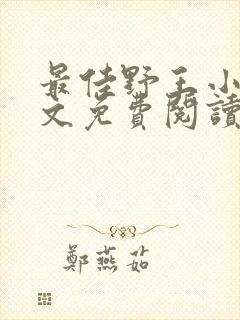 最佳野王小
文免費閱讀
鄭燕茹